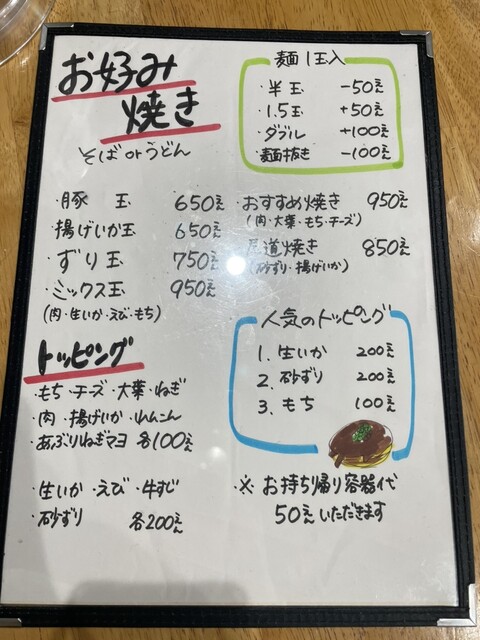 お好み
焼き
そばorうどん
麺1玉入
・半玉 -50え
・1.5玉 +50え
・ダブル +100え
・麺抜き -100え
・豚玉 650え
・揚げいか玉 650え
・ずり玉 750え
・ミックス玉 950え
(肉・生いか・えび・もち)
・おすすめ焼き 950え
(肉・大葉・もち・チーズ)
尾道焼き 850え
(砂ずり・揚げいか)
トッピング
・もち・チーズ・大葉・ねぎ
・肉・揚げいか・れんこん
・あぶりねぎマヨ 各100え
・生いか・えび・牛すじ
・砂ずり 各200え
人気のトッピング
1. 生いか 200え
2. 砂ずり 200え
3. もち 100え
・※お持ち帰り容器代
50えいただきます